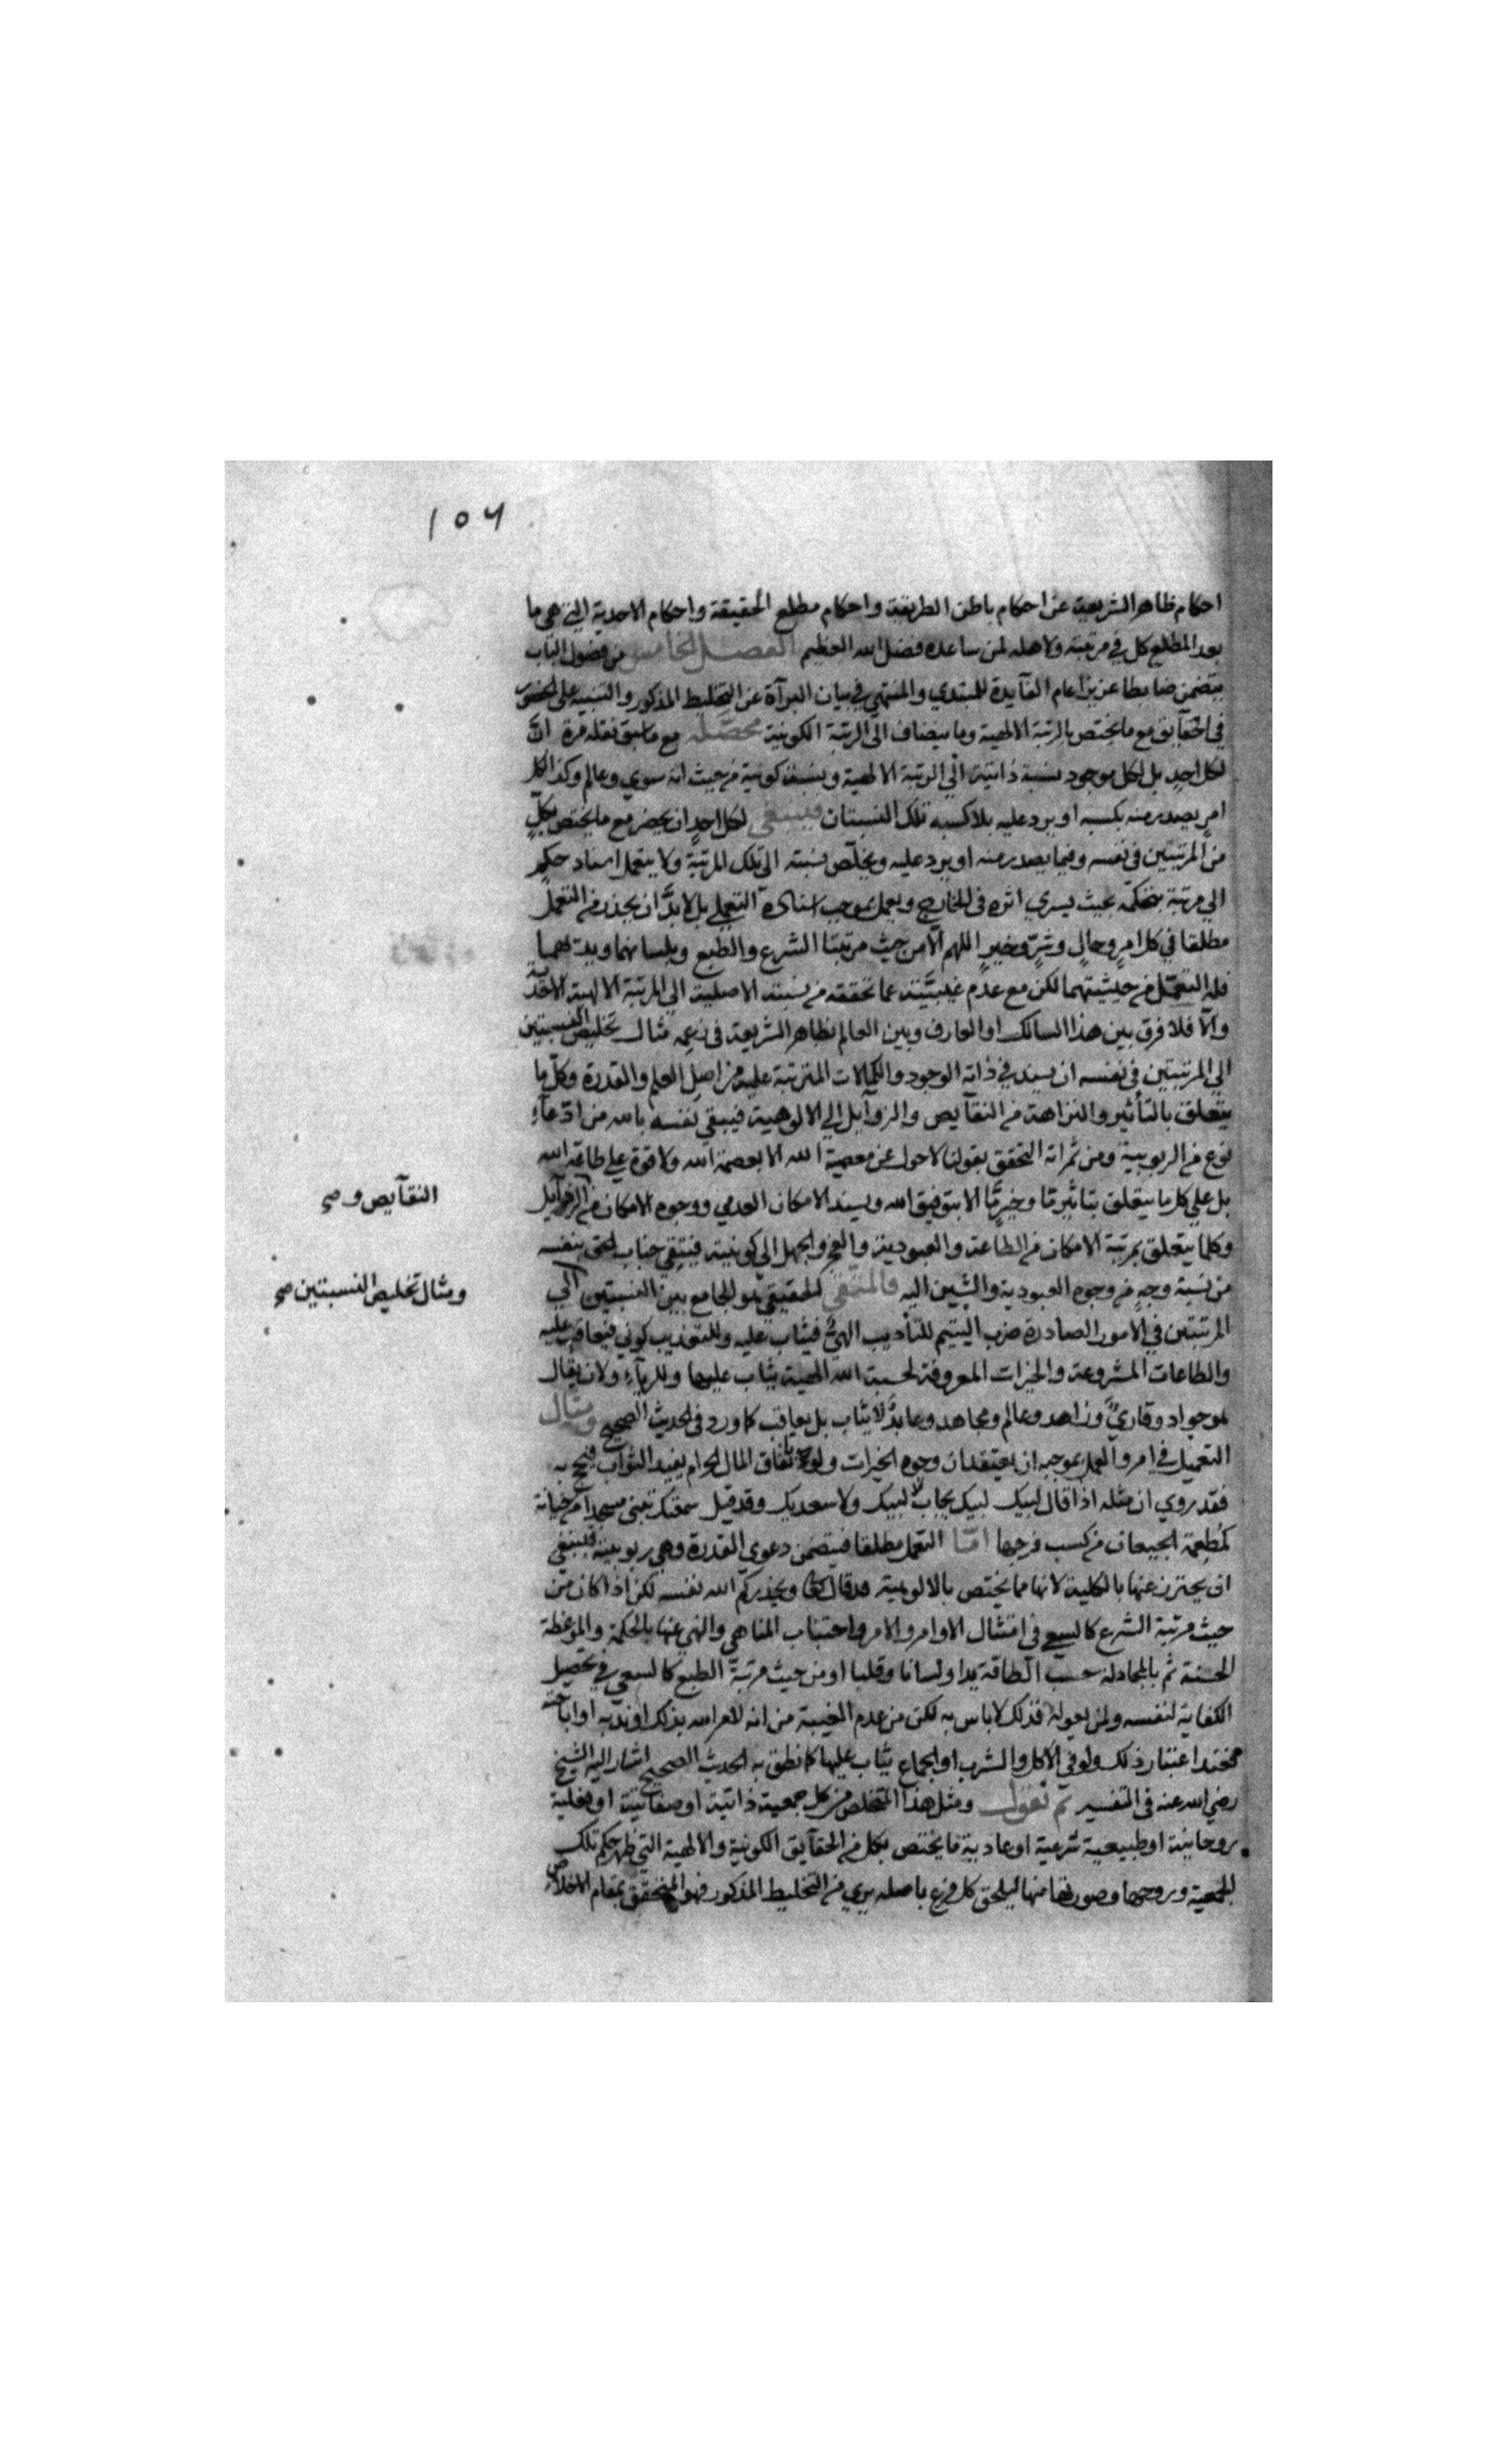 ١٥٦
احكام ظاهر الشريعة عن احكام باطن الطريقة واحكام مطلع الحقيقة واحكام الاحدية التي هي ما
بعد المطلع كل في مرتبته ولاهله لمن ساعده فضل الله العظيم الفصل الخامس من فصول الباب
يتضمن ضابطا عزيزا عام الفآيدة للمبتدي والمنتهي في بيان البرآة عن التخليط المذكور والتنبيه على الحضور
في الحقآيق مع ما يختص بالرتبة الالهية وما ينضاف الى الرتبة الكونية محصّله مع ما سبق نقله مرة انّ
لكل احدٍ بل لكل موجود نسبة ذاتية الى الرتبة الالهية ونسبة كونية من حيث انه سوي وعالم وكذا لكل
امر يصدر منه بكسبه او يرد عليه بلا كسبه تلك النسبتان فينبغي لكل احدٍ ان يحضر مع ما يختص بكلٍّ
من المرتبتين في نفسه وفيما يصدر منه او يرد عليه ويخلّص نسبته الى تلك المرتبة ولا يتعمل اسناد حكم
الى مرتبة بتحكمّه بحيث يسري اثره في الخارج ويعمل بموجب اسناده التعملي بل لا بدّ ان يحذر من التعمل
مطلقا في كل امرٍ وحالٍ وشرٍّ وخيرٍ اللهم الّا من حيث مرتبتا الشرع والطبع وبلسانهما
فله التعمّل من حيثيتهما لكن مع عدم غيبته عما تحققه من نسبته الاصلية الى المرتبة الالهية الاحدية
والّا فلا فرق بين هذا السالك او العارف وبين العالم بظاهر الشريعة في زعمه مثال تخليص النسبتين
الى المرتبتين في نفسه ان يسند في ذاته الوجود والكمالات المترتبة عليه من اصل العلم والقدرة وكل ما
يتعلق بالتأثير والنزاهة من النقآيص والرذآيل الى الالوهية فيبقي نفسه بالله من ادّعآء
نوع من الربوبية ومن ثمراته التحقق بقولنا لا حول عن معصية الله الا بعصمة الله ولا قوة على طاعة الله
بل على كل ما يتعلق بتأثير ما وخير ما الا بتوفيق الله ويسند الامكان العدمي ووجوه الامكان من الرذآيل
النقآيص و صح
وكلما يتعلق بمرتبة الامكان من الطاعة والعبودية والعجز والجهل الى كونيته فيتقي جناب الحق بنفسه
من نسبة وجهٍ من وجوه العبودية والشين اليه فالمتّقي الحقيقي هو الجامع بين النسبتين الى
ومثال تخليص النسبتين صح
المرتبتين في الامور الصادرة ضرب اليتيم للتأديب الهيٌ فيثاب عليه وللتعذيب كوني فيعاقب عليه
والطاعات المشروعة والخيرات المعروفة لحسبة الله الهية يثاب عليها وللرياء ولان يقال
هو جواد وقاريٌ وزاهد وعالم ومجاهد وعابدٌ لا يثاب بل يعاقب كما ورد في الحديث الصحيح ومثال
التعميل في امر والعمل بموجبه ان يعتقد ان وجوه الخيرات ولو بانفاق المال الحرام يفيد الثواب فيحج به
فقد روي ان مثله اذا قال لبيك لبيك يجاب لا لبيك ولا سعديك وقد قيل سمعتك تبني مسجدا من خيانة
كمُطعمة الجيعان من كسب فرجها امّا التعمل مطلقا فيتضمن دعوي القدرة وهي ربوبية فينبغي
ان يحترز عنها بالكلية لانها مما يختص بالالوهية قال تعالى ويحذركم الله نفسه لكن اذا كان من
حيث مرتبة الشرع كالسعي في امتثال الاوامر والامر واجتناب المناهي والنهي عنها بالحكمة والموعظة
الحسنة ثم بالمجادلة حسب الطاقة يدا ولسانا وقلبا او من حيث مرتبة الطبع كالسعي في تحصيل
الكفاية لنفسه ولمن يعوله فذلك لا باس به لكن من عدم الغيبة من انه لامر الله بذلك او ندبه او اباحته
فعند اعتبار ذلك ولو في الاكل والشرب او الجماع يثاب عليها كما نطق به الحديث الصحيح اشار اليه الشيخ
رضي الله عنه في التفسير ثم نقول ومثل هذا المتخلص من كل جمعية ذاتية او صفاتية او فعلية
روحانية او طبيعية شرعية او عادية ما يختص بكل من الحقآيق الكونية والالهية التي ظهر حكم تلك
الجمعية وروحها وصورتها منها ليلحق كل فرع باصله بري من التخليط المذكور فهو المتحقق بمقام الاخلاص